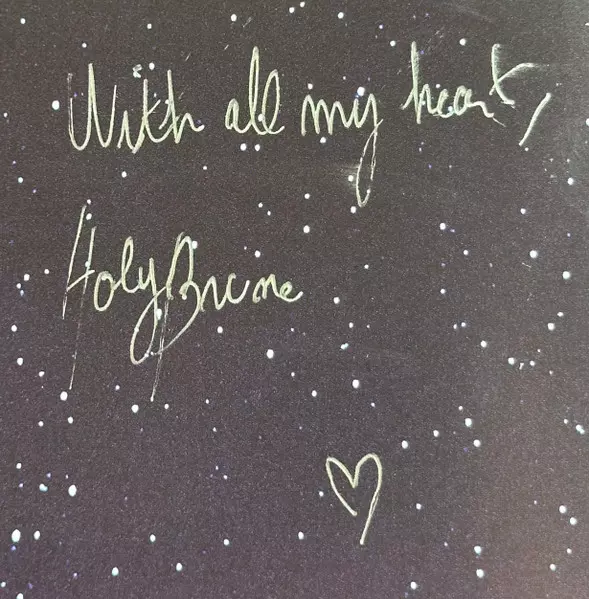 With all my heart,
HolyBrune